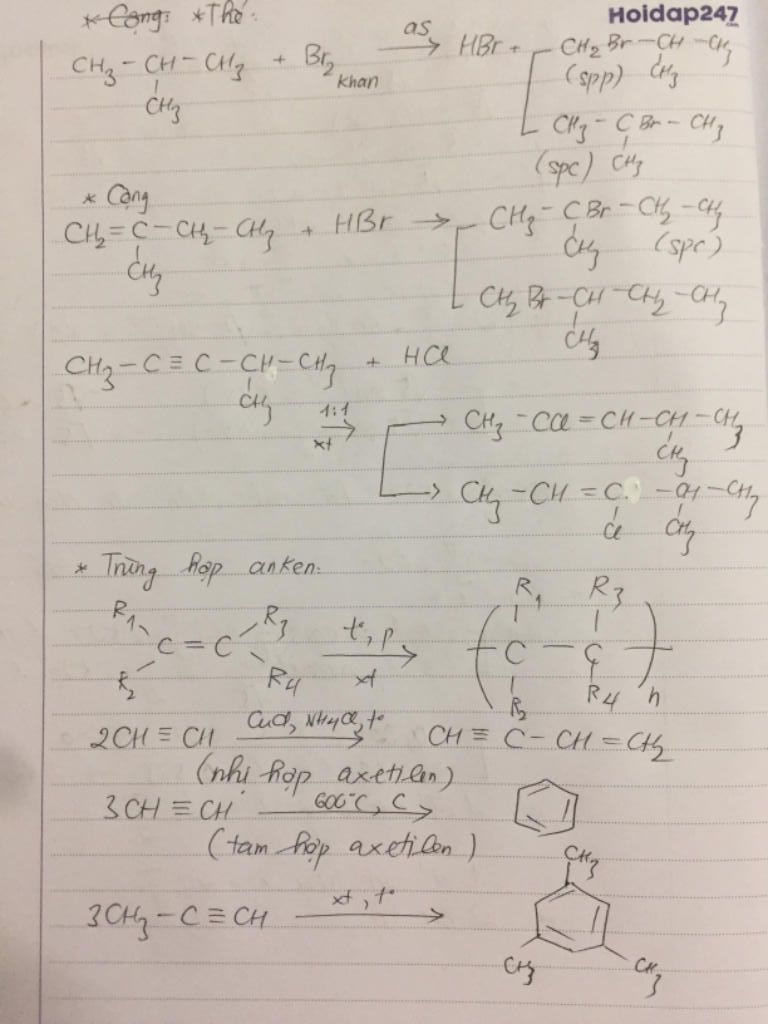 * Cộng: * Thế:
Hoidap247
.com
CH3 - CH - CH3 + Br2 khan as→ HBr + CH2Br - CH - CH3
CH3 (spp) CH3
CH3 - CBr - CH3
(spc) CH3
* Cộng
CH2 = C - CH2 - CH3 + HBr → CH3 - CBr - CH2 - CH3
CH3 CH3 (spc)
CH2Br - CH - CH2 - CH3
CH3
CH3 - C ≡ C - CH - CH3 + HCl
CH3
1:1 xt → CH3 - CCl = CH - CH - CH3
CH3
→ CH3 - CH = C - CH - CH3
Cl CH3
* Trùng hợp anken:
R1 R3 R1 R3
C = C t°, p xt → ( C - C ) n
R2 R4 R2 R4
2CH ≡ CH CuCl, NH4Cl, t° → CH ≡ C - CH = CH2
(nhị hợp axetilen)
3CH ≡ CH 600°C, C →
(tam hợp axetilen)
CH3
3CH3 - C ≡ CH xt, t° →
CH3 CH3